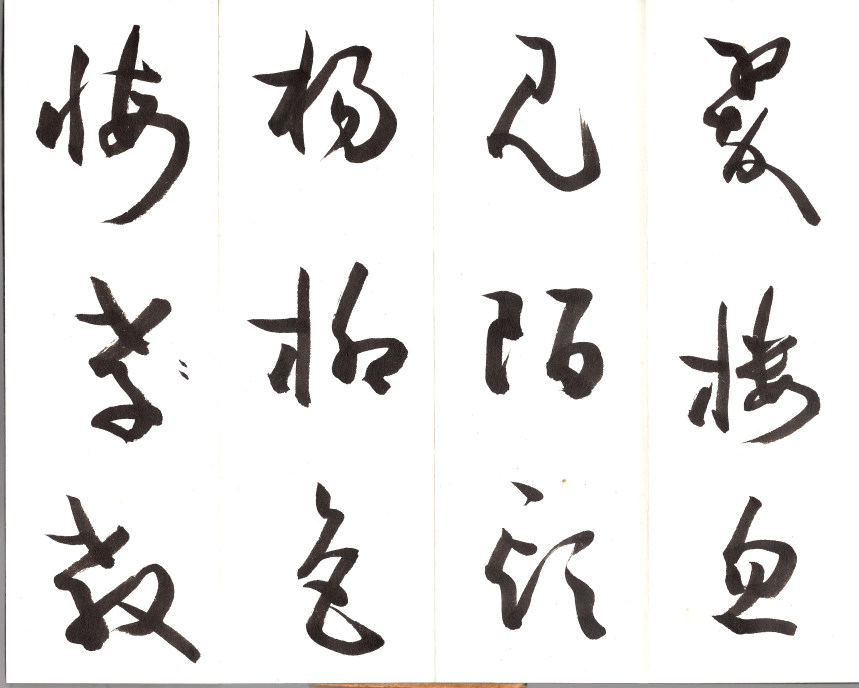 翠樓忽
見陌頭
楊柳色
悔孝教